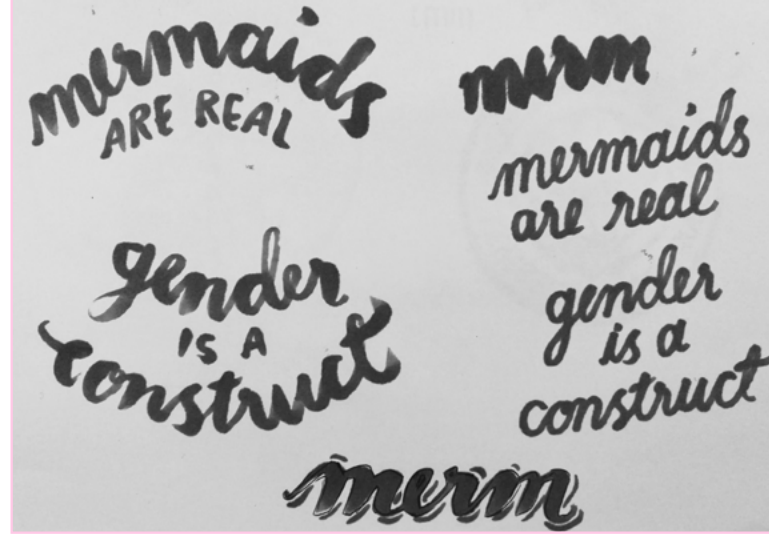 mermaids
ARE REAL
merm
mermaids
are real
gender
IS A
construct
gender
is a
construct
merm